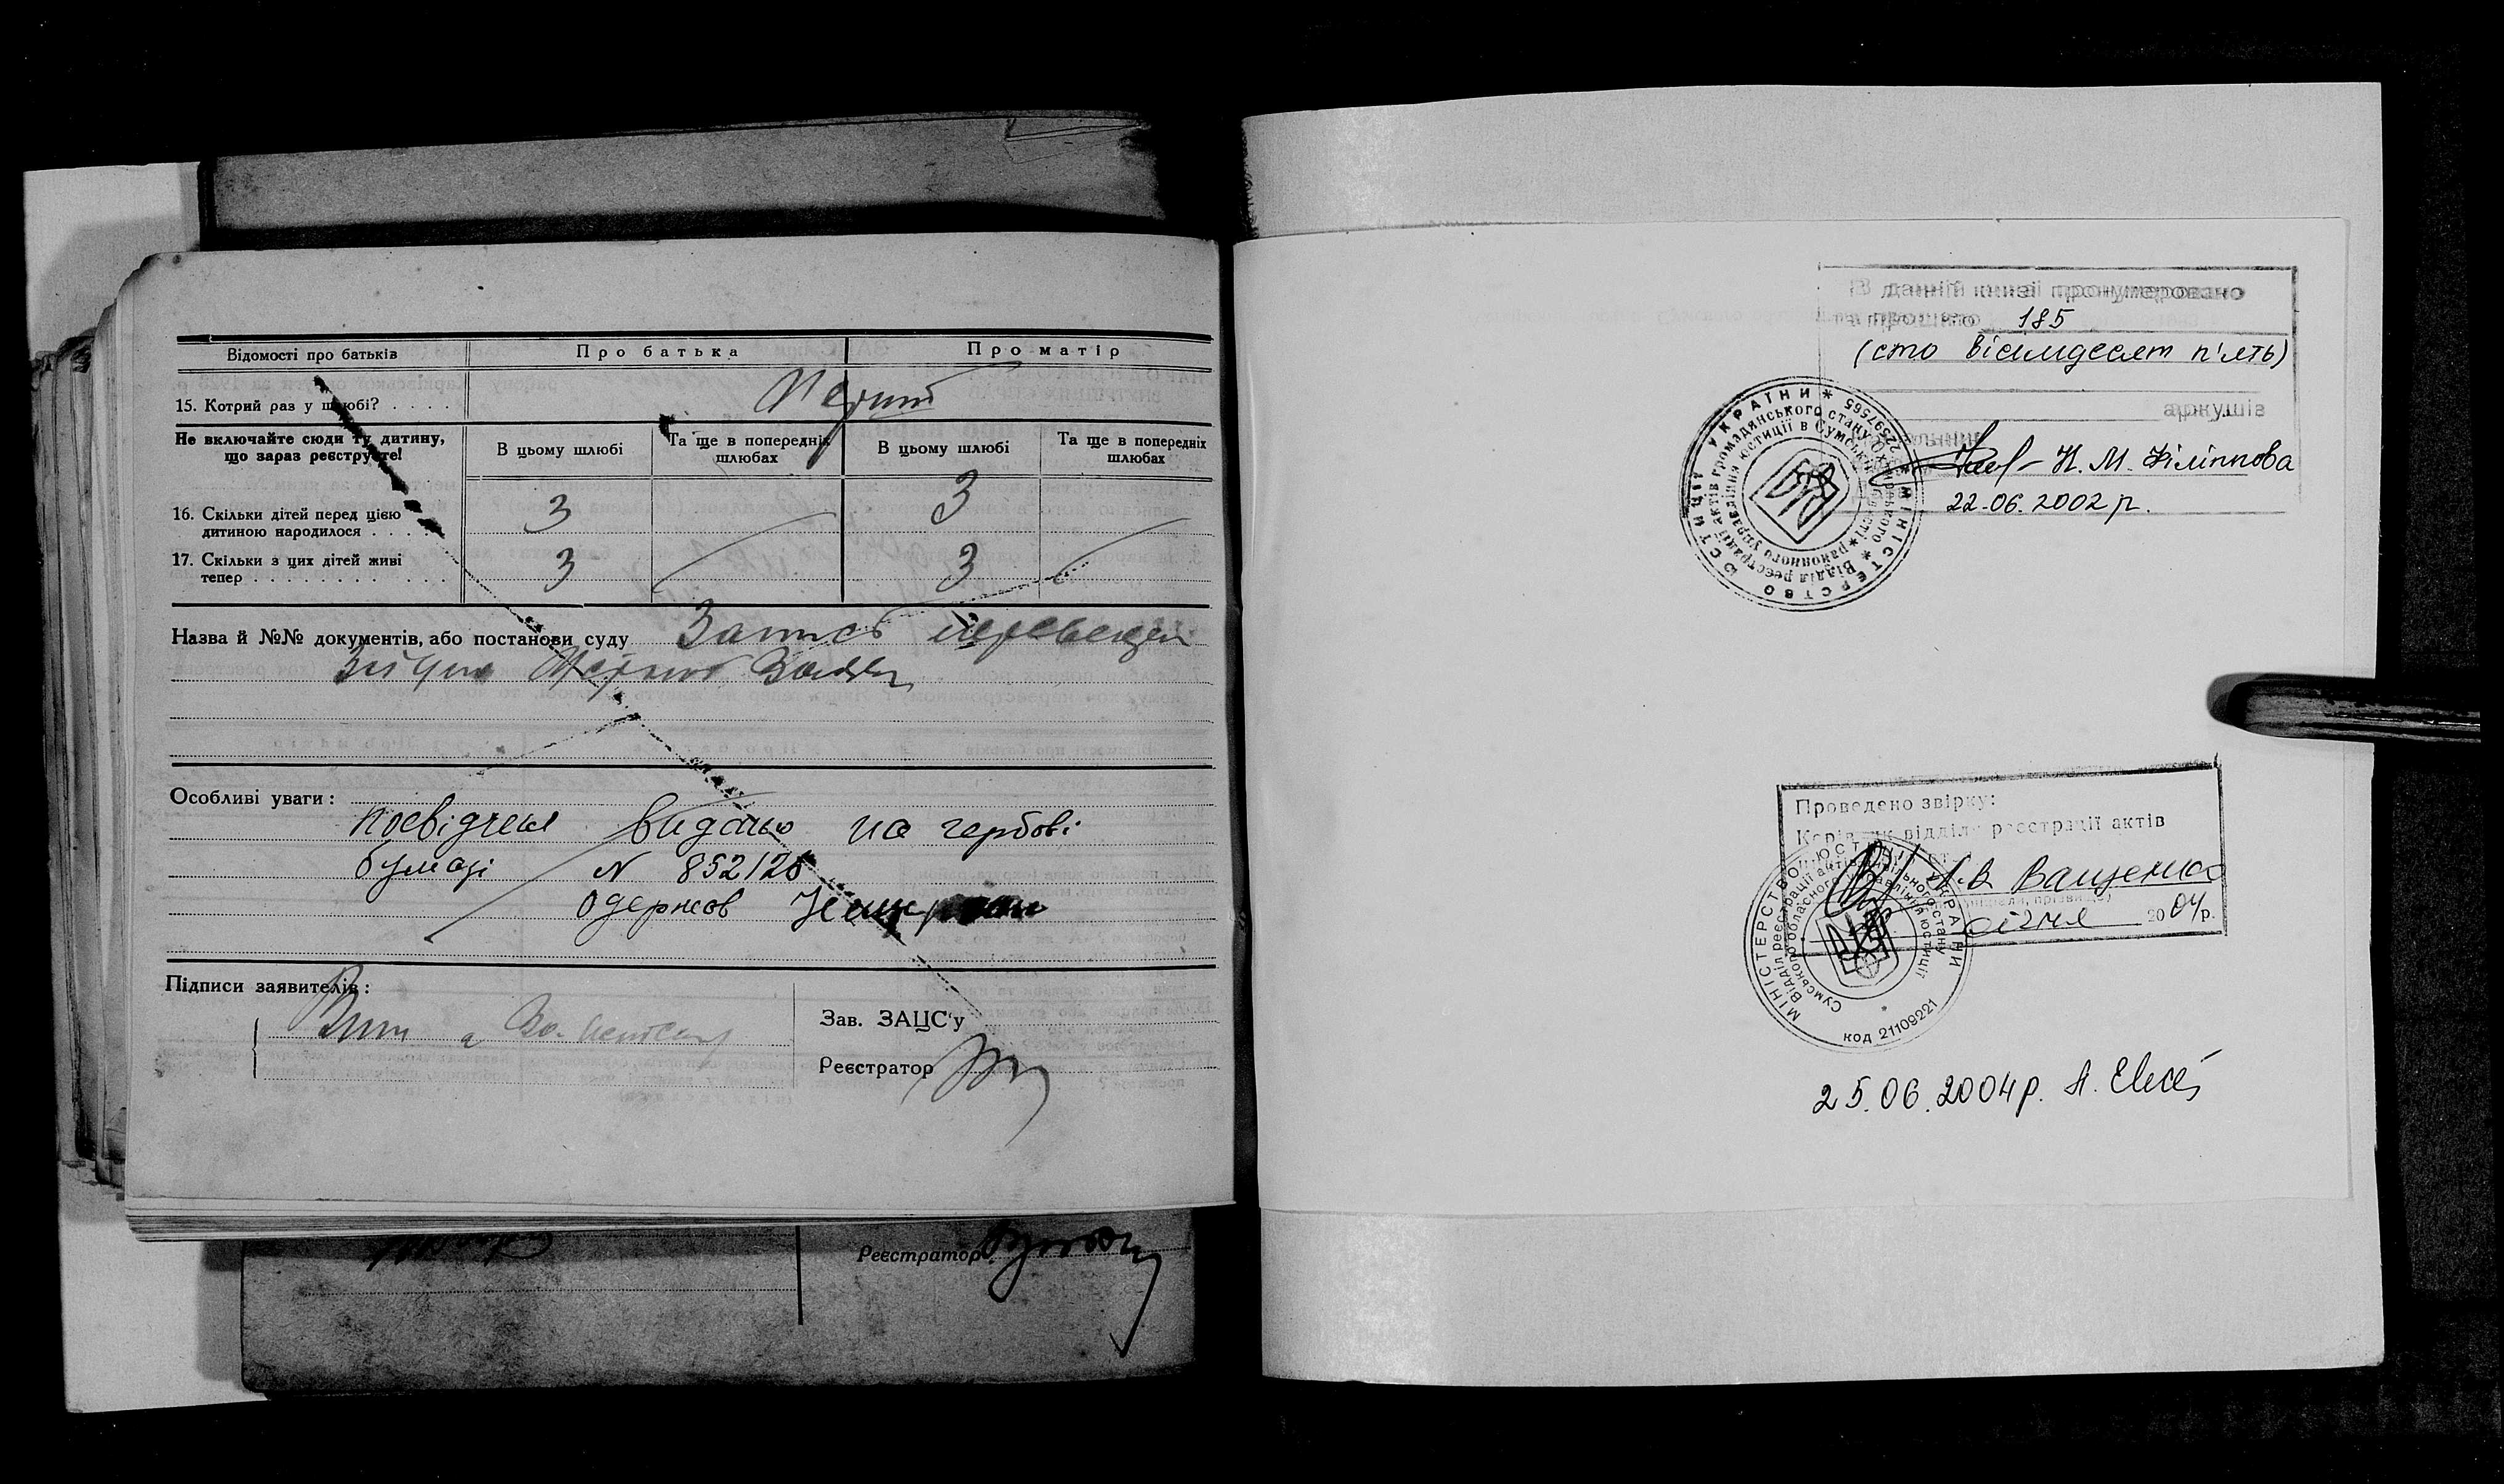 Відомості про батьків
Про батька
Про матір
15. Котрий раз у шлюбі? . . . .
Перший
Не включайте сюди ту дитину,
що зараз реєструєте!
В цьому шлюбі
Та ще в попередніх
шлюбах
В цьому шлюбі
Та ще в попередніх
шлюбах
16. Скільки дітей перед цією
дитиною народилося . . . .
3
3
17. Скільки з цих дітей живі
тепер . . . . . . . . . . . .
3
3
Назва й №№ документів, або постанови суду Запись
Особливі уваги:
посвідчення видано на гербові
бумазі N 852128
одержав
Підписи заявителів:
Зав. ЗАЦС'у
Реєстратор
Реєстратор
В данній книзі пронумеровано
та прошито 185
(сто вісімдесят п'ять)
аркушів
Н. М. Філіппова
22.06.2002 р.
МІНІСТЕРСТВО ЮСТИЦІЇ УКРАЇНИ
22597565
Проведено звірку:
Керівник відділу реєстрації актів
Л.В Ващенко
січня 2004 р.
МІНІСТЕРСТВО ЮСТИЦІЇ УКРАЇНИ
Відділ реєстрації актів цивільного стану
Сумського обласного управління юстиції
код 21109221
25.06.2004р.